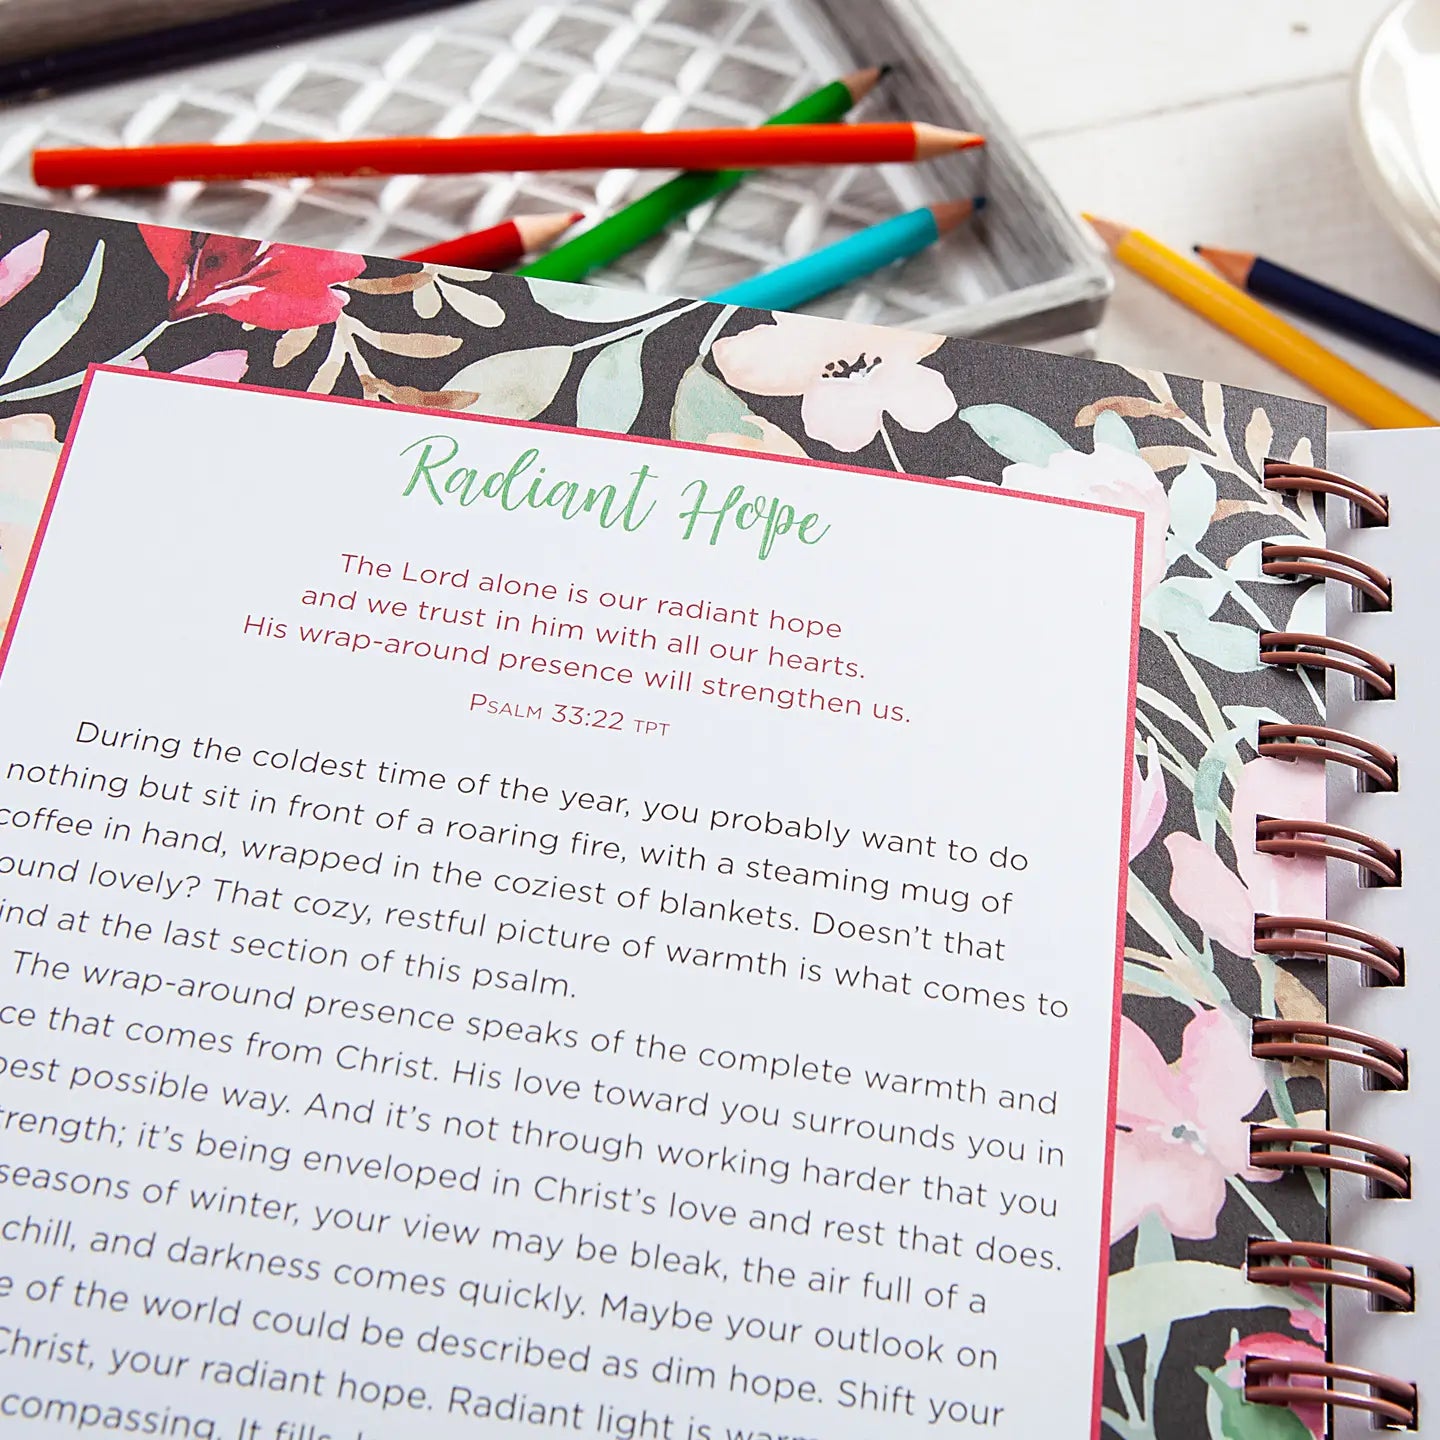 Radiant Hope
The Lord alone is our radiant hope
and we trust in him with all our hearts.
His wrap-around presence will strengthen us.
PSALM 33:22 TPT
During the coldest time of the year, you probably want to do
nothing but sit in front of a roaring fire, with a steaming mug of
coffee in hand, wrapped in the coziest of blankets. Doesn't that
lovely? That cozy, restful picture of warmth is what comes to
at the last section of this psalm.
The wrap-around presence speaks of the complete warmth and
that comes from Christ. His love toward you surrounds you in
best possible way. And it's not through working harder that you
it's being enveloped in Christ's love and rest that does.
seasons of winter, your view may be bleak, the air full of a
chill, and darkness comes quickly. Maybe your outlook on
of the world could be described as dim hope. Shift your
Christ, your radiant hope. Radiant light is
It fills